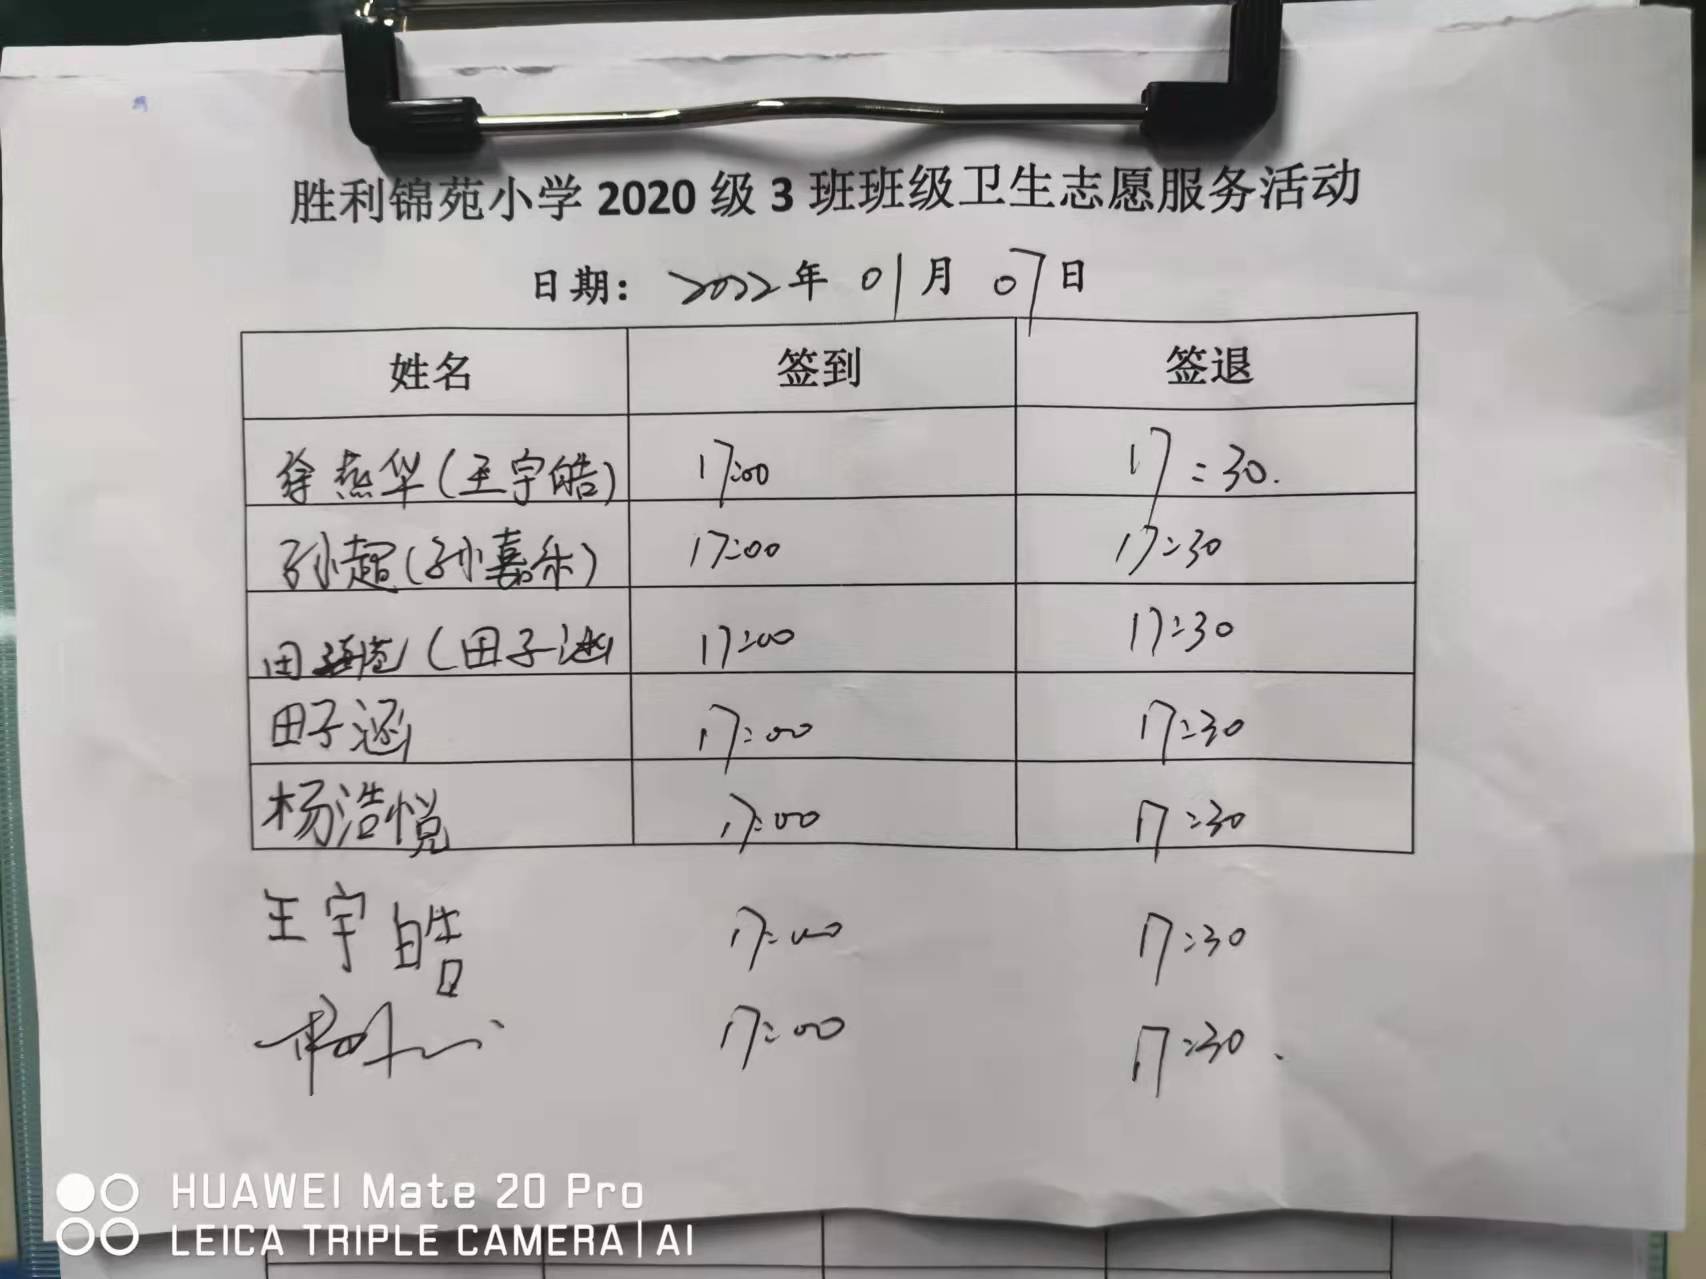 胜利锦苑小学 2020 级 3 班班级卫生志愿服务活动
日期： 2022 年 01 月 07 日
姓名 签到 签退
徐燕华(王宇皓) 17:00 17:30.
孙超(孙嘉乐) 17:00 17:30
田 (田子涵 17:00 17:30
田子涵 17:00 17:30
杨浩悦 17:00 17:30
王宇皓 17:00 17:30
17:00 17:30.
HUAWEI Mate 20 Pro
LEICA TRIPLE CAMERA | AI